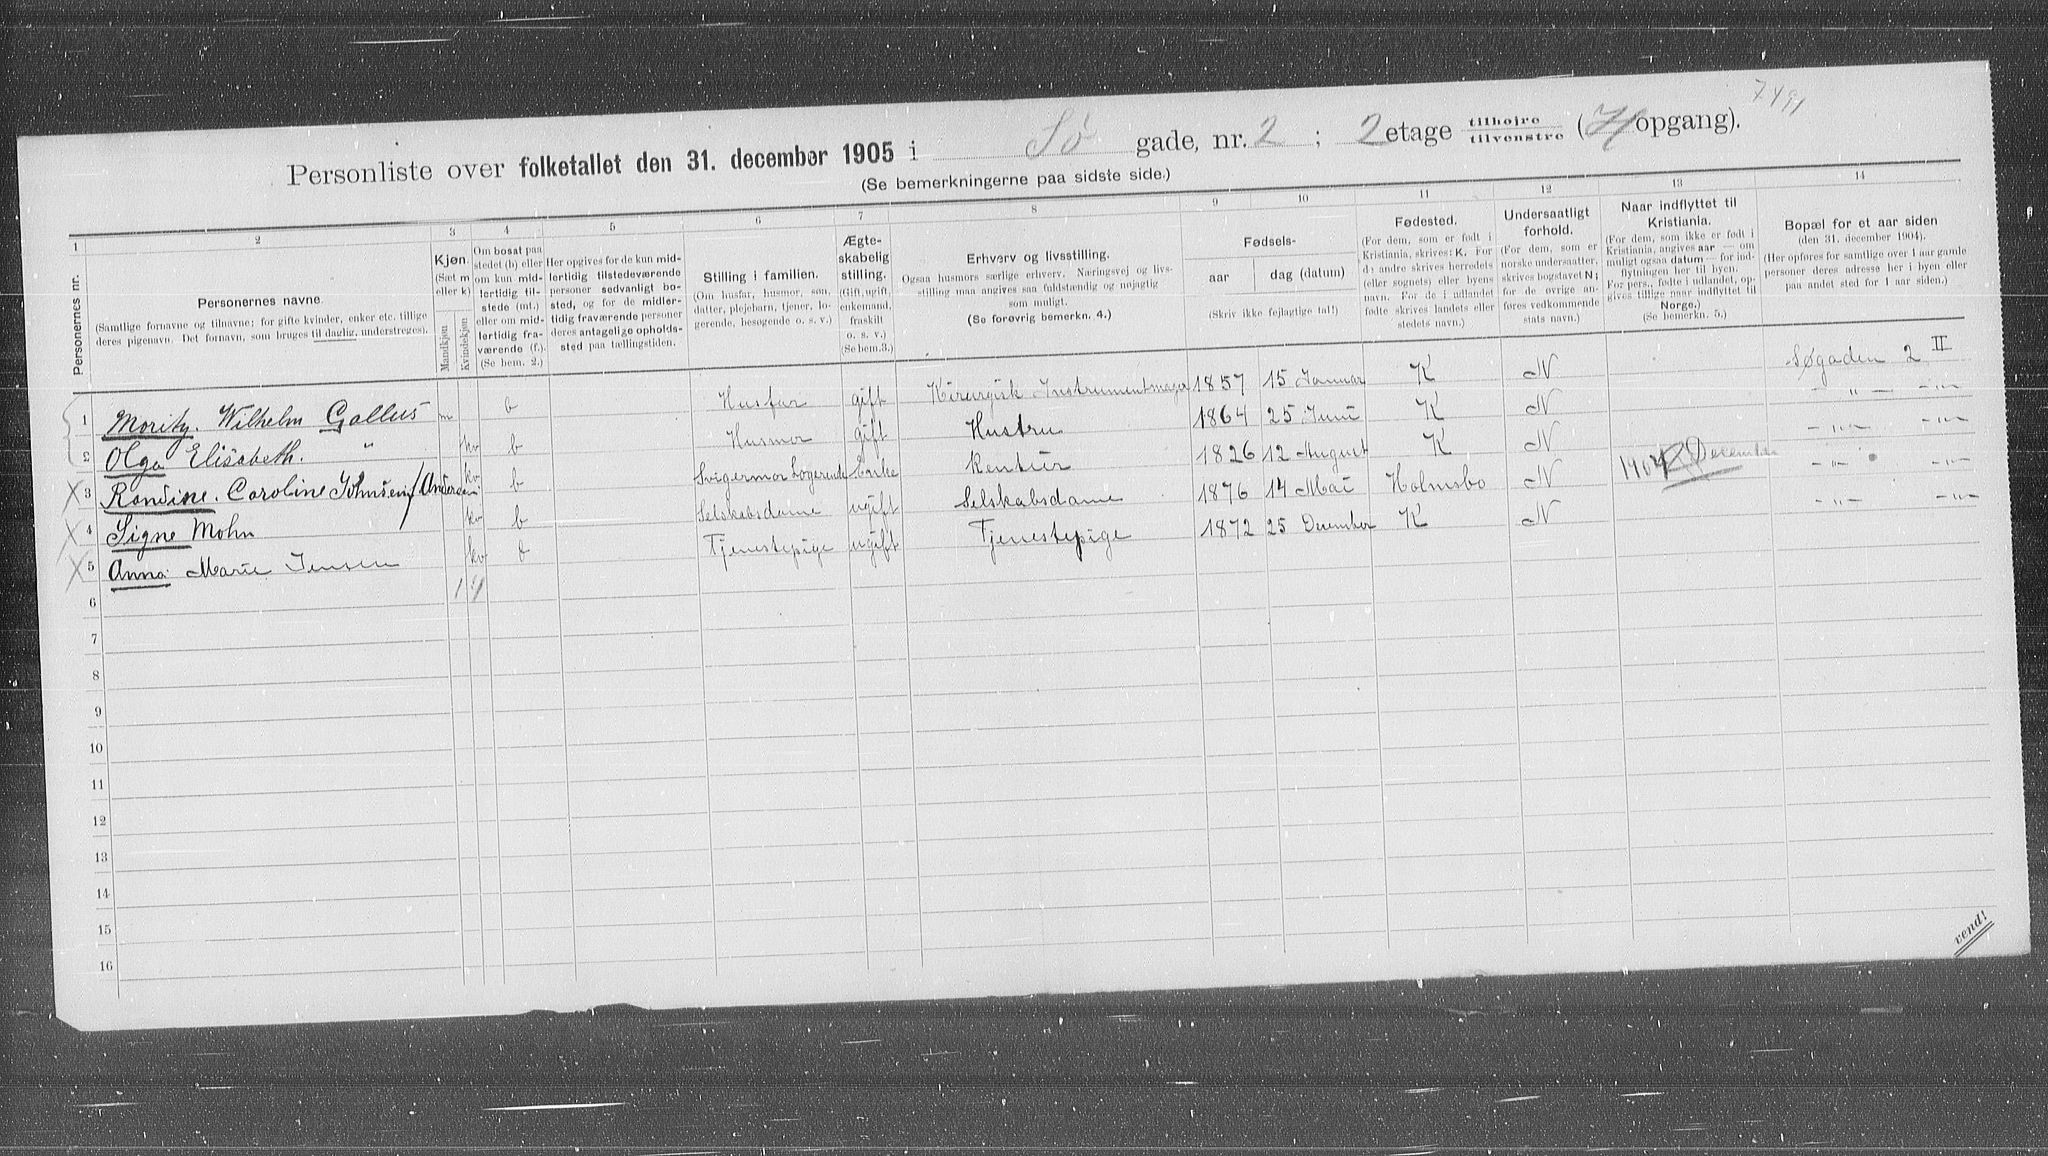 7491
Personliste over folketallet den 31. december 1905 i Sø gade, nr. 2 ; 2 etage tilhøjre tilvenstre ( opgang).
(Se bemerkningerne paa sidste side.)
1 2 3 4 5 6 7 8 9 10 11 12 13 14
Personernes nr.
Personernes navne.
(Samtlige fornavne og tilnavne; for gifte kvinder, enker etc. tillige
deres pigenavn. Det fornavn, som bruges til daglig, understreges).
Kjøn.
(Sæt m
eller k)
Mandkjøn
Kvindekjøn
Om bosat paa
stedet (b) eller
om kun mid-
lertidig til-
stede (mt.)
eller om mid-
lertidig fra-
værende (f.).
(Se bem. 2.)
Her opgives for de kun mid-
lertidig tilstedeværende
personer sedvanligt bo-
sted, og for de midler-
tidig fraværende personer
deres antagelige opholds-
sted paa tællingstiden.
Stilling i familien.
(Om husfar, husmor, søn,
datter, plejebarn, tjener, lo-
gerende, besøgende o. s. v.)
Ægte-
skabelig
stilling.
(Gift, ugift,
enkemand,
fraskilt
o. s. v.)
(Se bem.3.)
Erhverv og livsstilling.
Ogsaa husmors særlige erhverv. Næringsvej og livs-
stilling maa angives saa fuldstændig og nøjagtig
som muligt.
(Se forøvrig bemerkn. 4.)
Fødsels-
aar dag (datum)
(Skriv ikke fejlagtige tal!)
Fødested.
(For dem, som er født i
Kristiania, skrives: K. For
de andre skrives herredets
(eller sognets) eller byens
navn. For de i udlandet
fødte skrives landets eller
stedets navn.)
Undersaatligt
forhold.
(For dem, som er
norske undersaatter,
skrives bogstavet N;
for de øvrige an-
føres vedkommende
stats navn.)
Naar indflyttet til
Kristiania.
(For dem, som ikke er født i
Kristiania, angives aar — om
muligt ogsaa datum — for ind-
flytningen her til byen.
For pers., fødte i udlandet, op-
gives tillige naar indflyttet til
Norge.)
(Se bemerkn. 5.)
Bopæl for et aar siden
(den 31. december 1904).
(Her opføres for samtlige over 1 aar gamle
personer deres adresse her i byen eller
paa andet sted for 1 aar siden.)
1 Moritz. Wilhelm Gallus m b Husfar gift Kirurgisk Instrumentmager 1857 15 Januar K N Søgaden 2 II
2 Olga Elisabeth. " kv b Husmor gift Hustru 1864 25 Juni K N — " — — " —
3 Randine. Caroline Johnsen / Andersen kv b Svigermor Logerende Enke Rentier 1826 12 August K N — " — — " —
4 Signe Mohn kv b Selskabsdame ugift Selskabsdame 1876 14 Mai Holmsbo N 1904 December — " — — " —
5 Anna Marie Jensen kv b Tjenestepige ugift Tjenestepige 1872 25 December K N — " — — " —
6 1 4
7
8
9
10
11
12
13
14
15
16
vend!